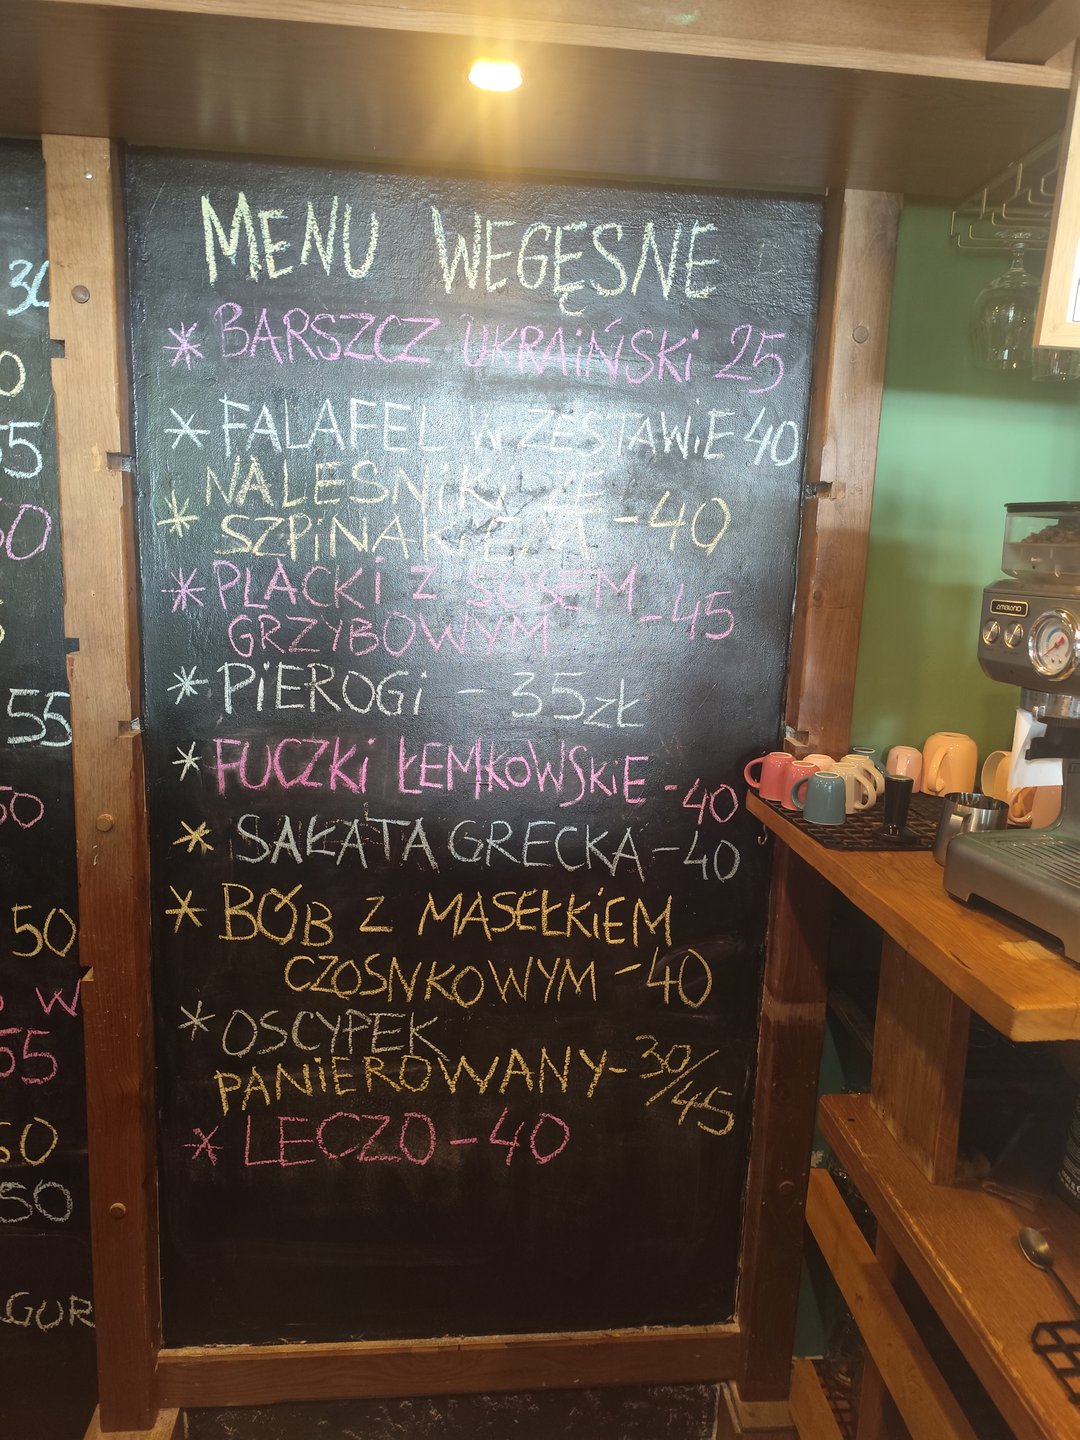 MENU WEGĘSNE
* BARSZCZ UKRAIŃSKI 25
* FALAFEL W ZESTAWIE 40
NALEŚNIKI ZE
* SZPINAKIEM - 40
* PLACKI Z SOSEM
GRZYBOWYM - 45
* PIEROGI - 35 ZŁ
* FUCZKI ŁEMKOWSKIE - 40
* SAŁATA GRECKA - 40
* BÓB Z MASEŁKIEM
CZOSNKOWYM - 40
* OSCYPEK
PANIEROWANY - 30/45
* LECZO - 40
30
0
55
50
55
50
50
W
55
50
50
GUR
AMBIANO